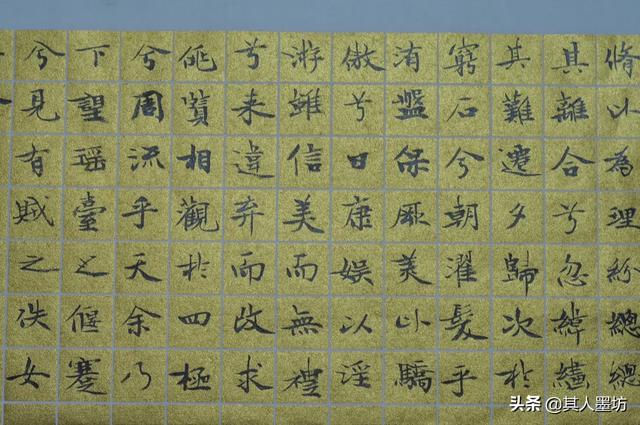 脩以為理紛總總
其離合兮忽緯繣
其難遷夕歸次於
窮石兮朝濯髮乎
洧盤保厥美以驕
傲兮日康娱以淫
游雖信美而無禮
兮来違弃而改求
覽相觀於四極
兮周流乎天余乃
下望瑶臺之偃蹇
兮見有賊之佚女
头条 @其人墨坊